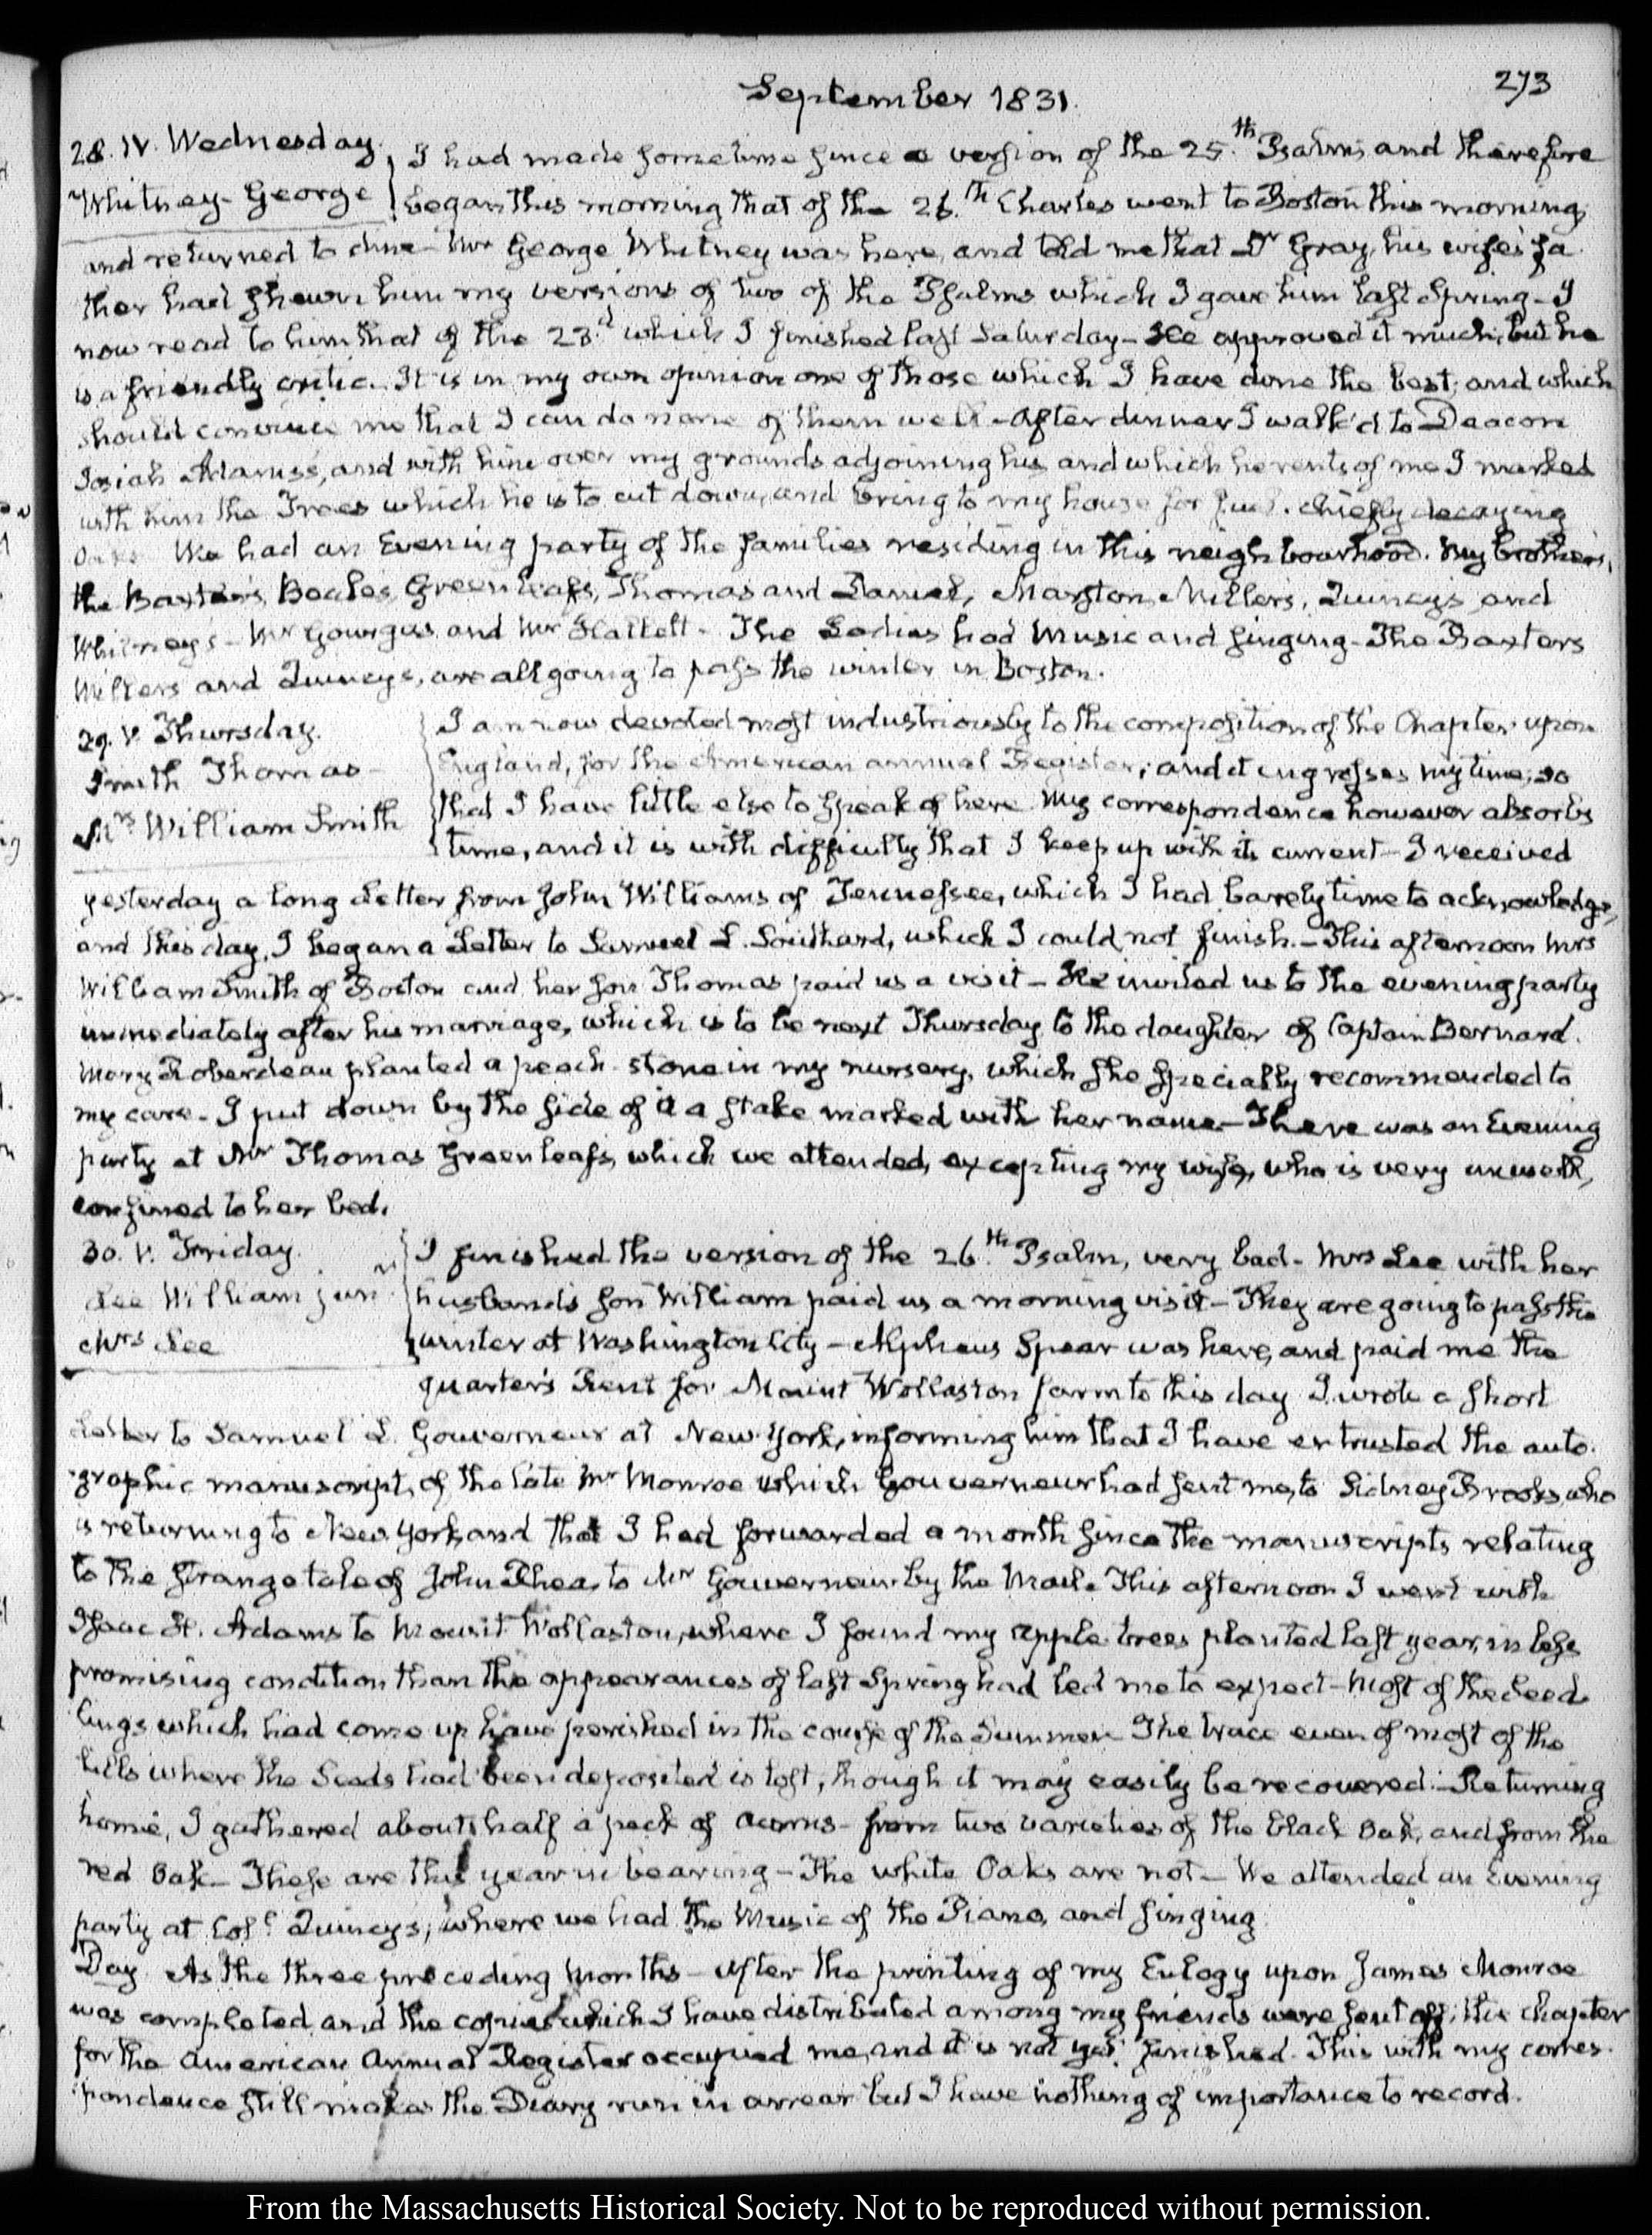 September 1831.
273
28. IV. Wednesday.
Whitney- George
I had made sometime since a version of the 25.th Psalm, and therefore
began this morning that of the 26.th Charles went to Boston this morning,
and returned to dine- Mr George Whitney was here, and told me that Dr Gray, his wife's fa-
ther had shewn him my versions of two of the Psalms which I gave him last Spring- I
now read to him that of the 23.d which I finished last Saturday- He approved it much; but he
is a friendly critic. It is in my own opinion one of those which I have done the best; and which
should convince me that I can do none of them well- After dinner I walk'd to Deacon
Josiah Adams's, and with him over my grounds adjoining his and which he rents of me I marked
with him the Trees which he is to cut down, and bring to my house for fuel. chiefly decaying
Oaks. We had an Evening party of the families residing in this neighbourhood. My brother's,
the Baxters, Beales, Greenleafs, Thomas and Daniel, Marston, Millers, Quincys and
Whitney's- Mr Gourgas and Mr Hallett- The Ladies had Music and singing- The Baxters
Millers and Quincys, are all going to pass the winter in Boston.
29. V. Thursday.
Smith Thomas-
Mrs William Smith
I am now devoted most industriously to the composition of the Chapter upon
England, for the American annual Register; and it engrosses my time; so
that I have little else to speak of here. My correspondence however absorbs
time, and it is with difficulty that I keep up with its current- I received
yesterday a long Letter from John Williams of Tennessee, which I had barely time to acknowledge,
and this day, I began a Letter to Samuel L. Southard, which I could not finish.- This afternoon Mrs
William Smith of Boston and her son Thomas paid us a visit- He invited us to the evening party
immediately after his marriage, which is to be next Thursday to the daughter of Captain Bernard.
Mary Roberdeau planted a peach-stone in my nursery, which she specially recommended to
my care- I put down by the side of it a stake marked with her name- There was an Evening
party at Mr Thomas Greenleafs, which we attended, excepting my wife, who is very unwell,
confined to her bed.
30. V. Friday.
Lee William junr
Mrs Lee
I finished the version of the 26.th Psalm, very bad- Mrs Lee with her
husband's son William paid us a morning visit- They are going to pass the
winter at Washington City- Alpheus Spear was here, and paid me the
quarter's Rent for Mount Wollaston farm to this day I wrote a short
Letter to Samuel L. Gouverneur at New-York, informing him that I have entrusted the auto-
graphic manuscript, of the late Mr Monroe which Gouverneur had sent me, to Sidney Brooks, who
is returning to New York, and that I had forwarded a month since the manuscripts relating
to the strange tale of John Rhea, to Mr Gouverneur by the Mail. This afternoon I went with
Isaac H. Adams to Mount Wollaston, where I found my apple trees planted last year, in less
promising condition than the appearances of last Spring had led me to expect- Most of the seed-
lings which had come up have perished in the course of the Summer The trace even of most of the
hills where the Seeds had been deposited is lost, though it may easily be recovered.- Returning
home, I gathered about half a peck of acorns- from two varieties of the black Oak, and from the
red Oak- These are this year in bearing- The white Oaks are not- We attended an Evening
party at Col.l Quincy's, where we had the Music of the Piano, and singing.
Day. As the three preceding Months- After the printing of my Eulogy upon James Monroe
was completed and the copies which I have distributed among my friends were sent off; the chapter
for the American Annual Register occupied me, and it is not yet finished. This with my corres-
pondence still makes the Diary run in arrear but I have nothing of importance to record.
From the Massachusetts Historical Society. Not to be reproduced without permission.